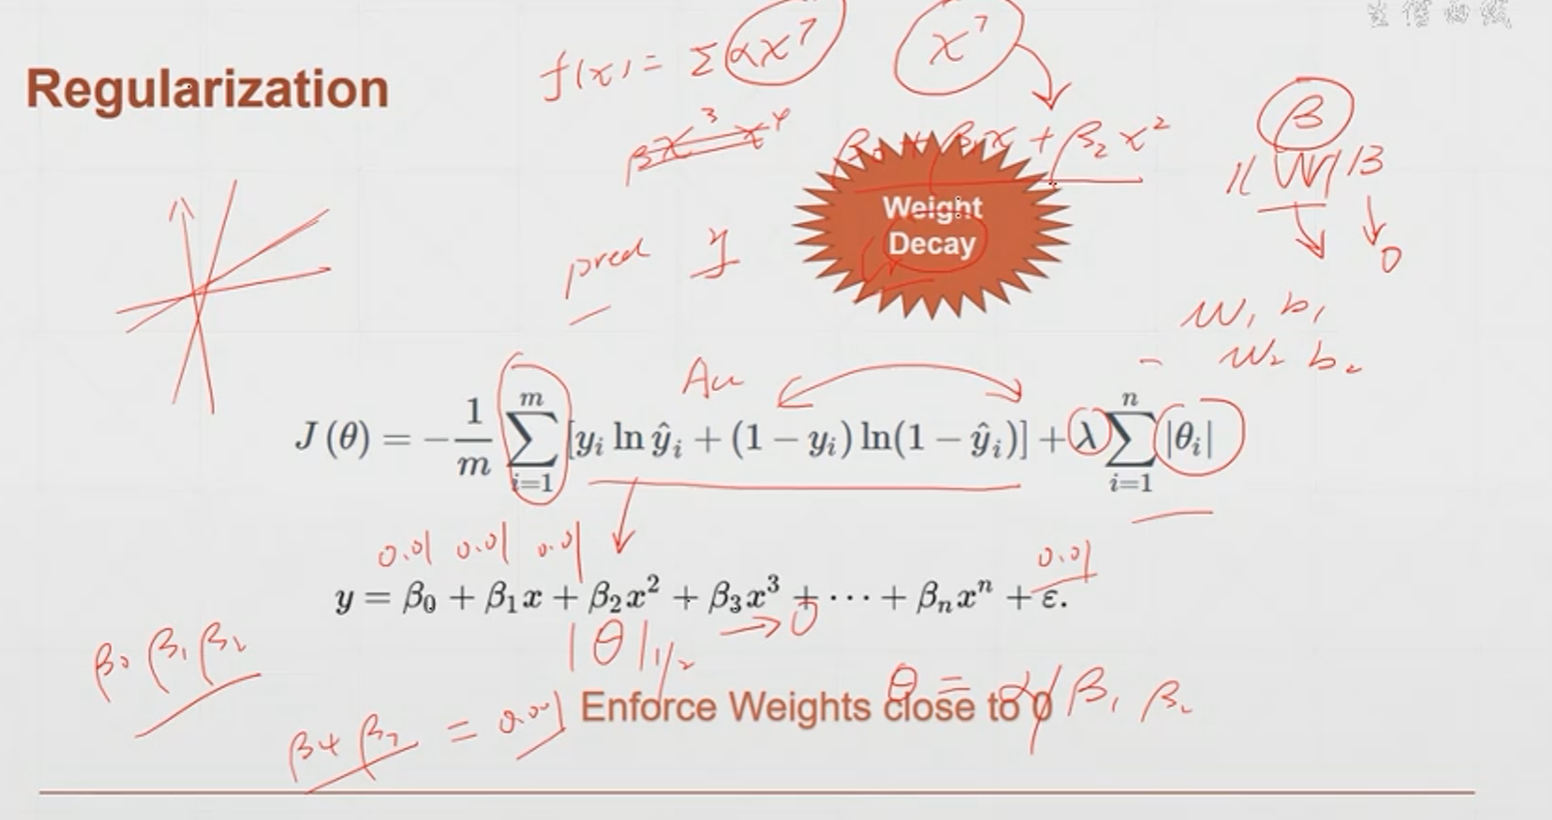 Regularization
f(x) = Σ αx⁷
x⁷
βx³ x⁴
β₀ + β₁x + β₂x²
β
Weight
Decay
pred y
0
W₁ b₁
W₂ b₂
J(θ) = −1/m ∑ᵢ₌₁ᵐ [yᵢ ln ŷᵢ + (1 − yᵢ) ln(1 − ŷᵢ)] + λ ∑ᵢ₌₁ⁿ |θᵢ|
0.01 0.01 0.01
0.01
y = β₀ + β₁x + β₂x² + β₃x³ + ⋯ + βₙxⁿ + ε.
β₀ β₁ β₂
|θ|1/2 → 0
θ = α β₁ β₂
Enforce Weights close to 0
β₄ β₇ = 0.001